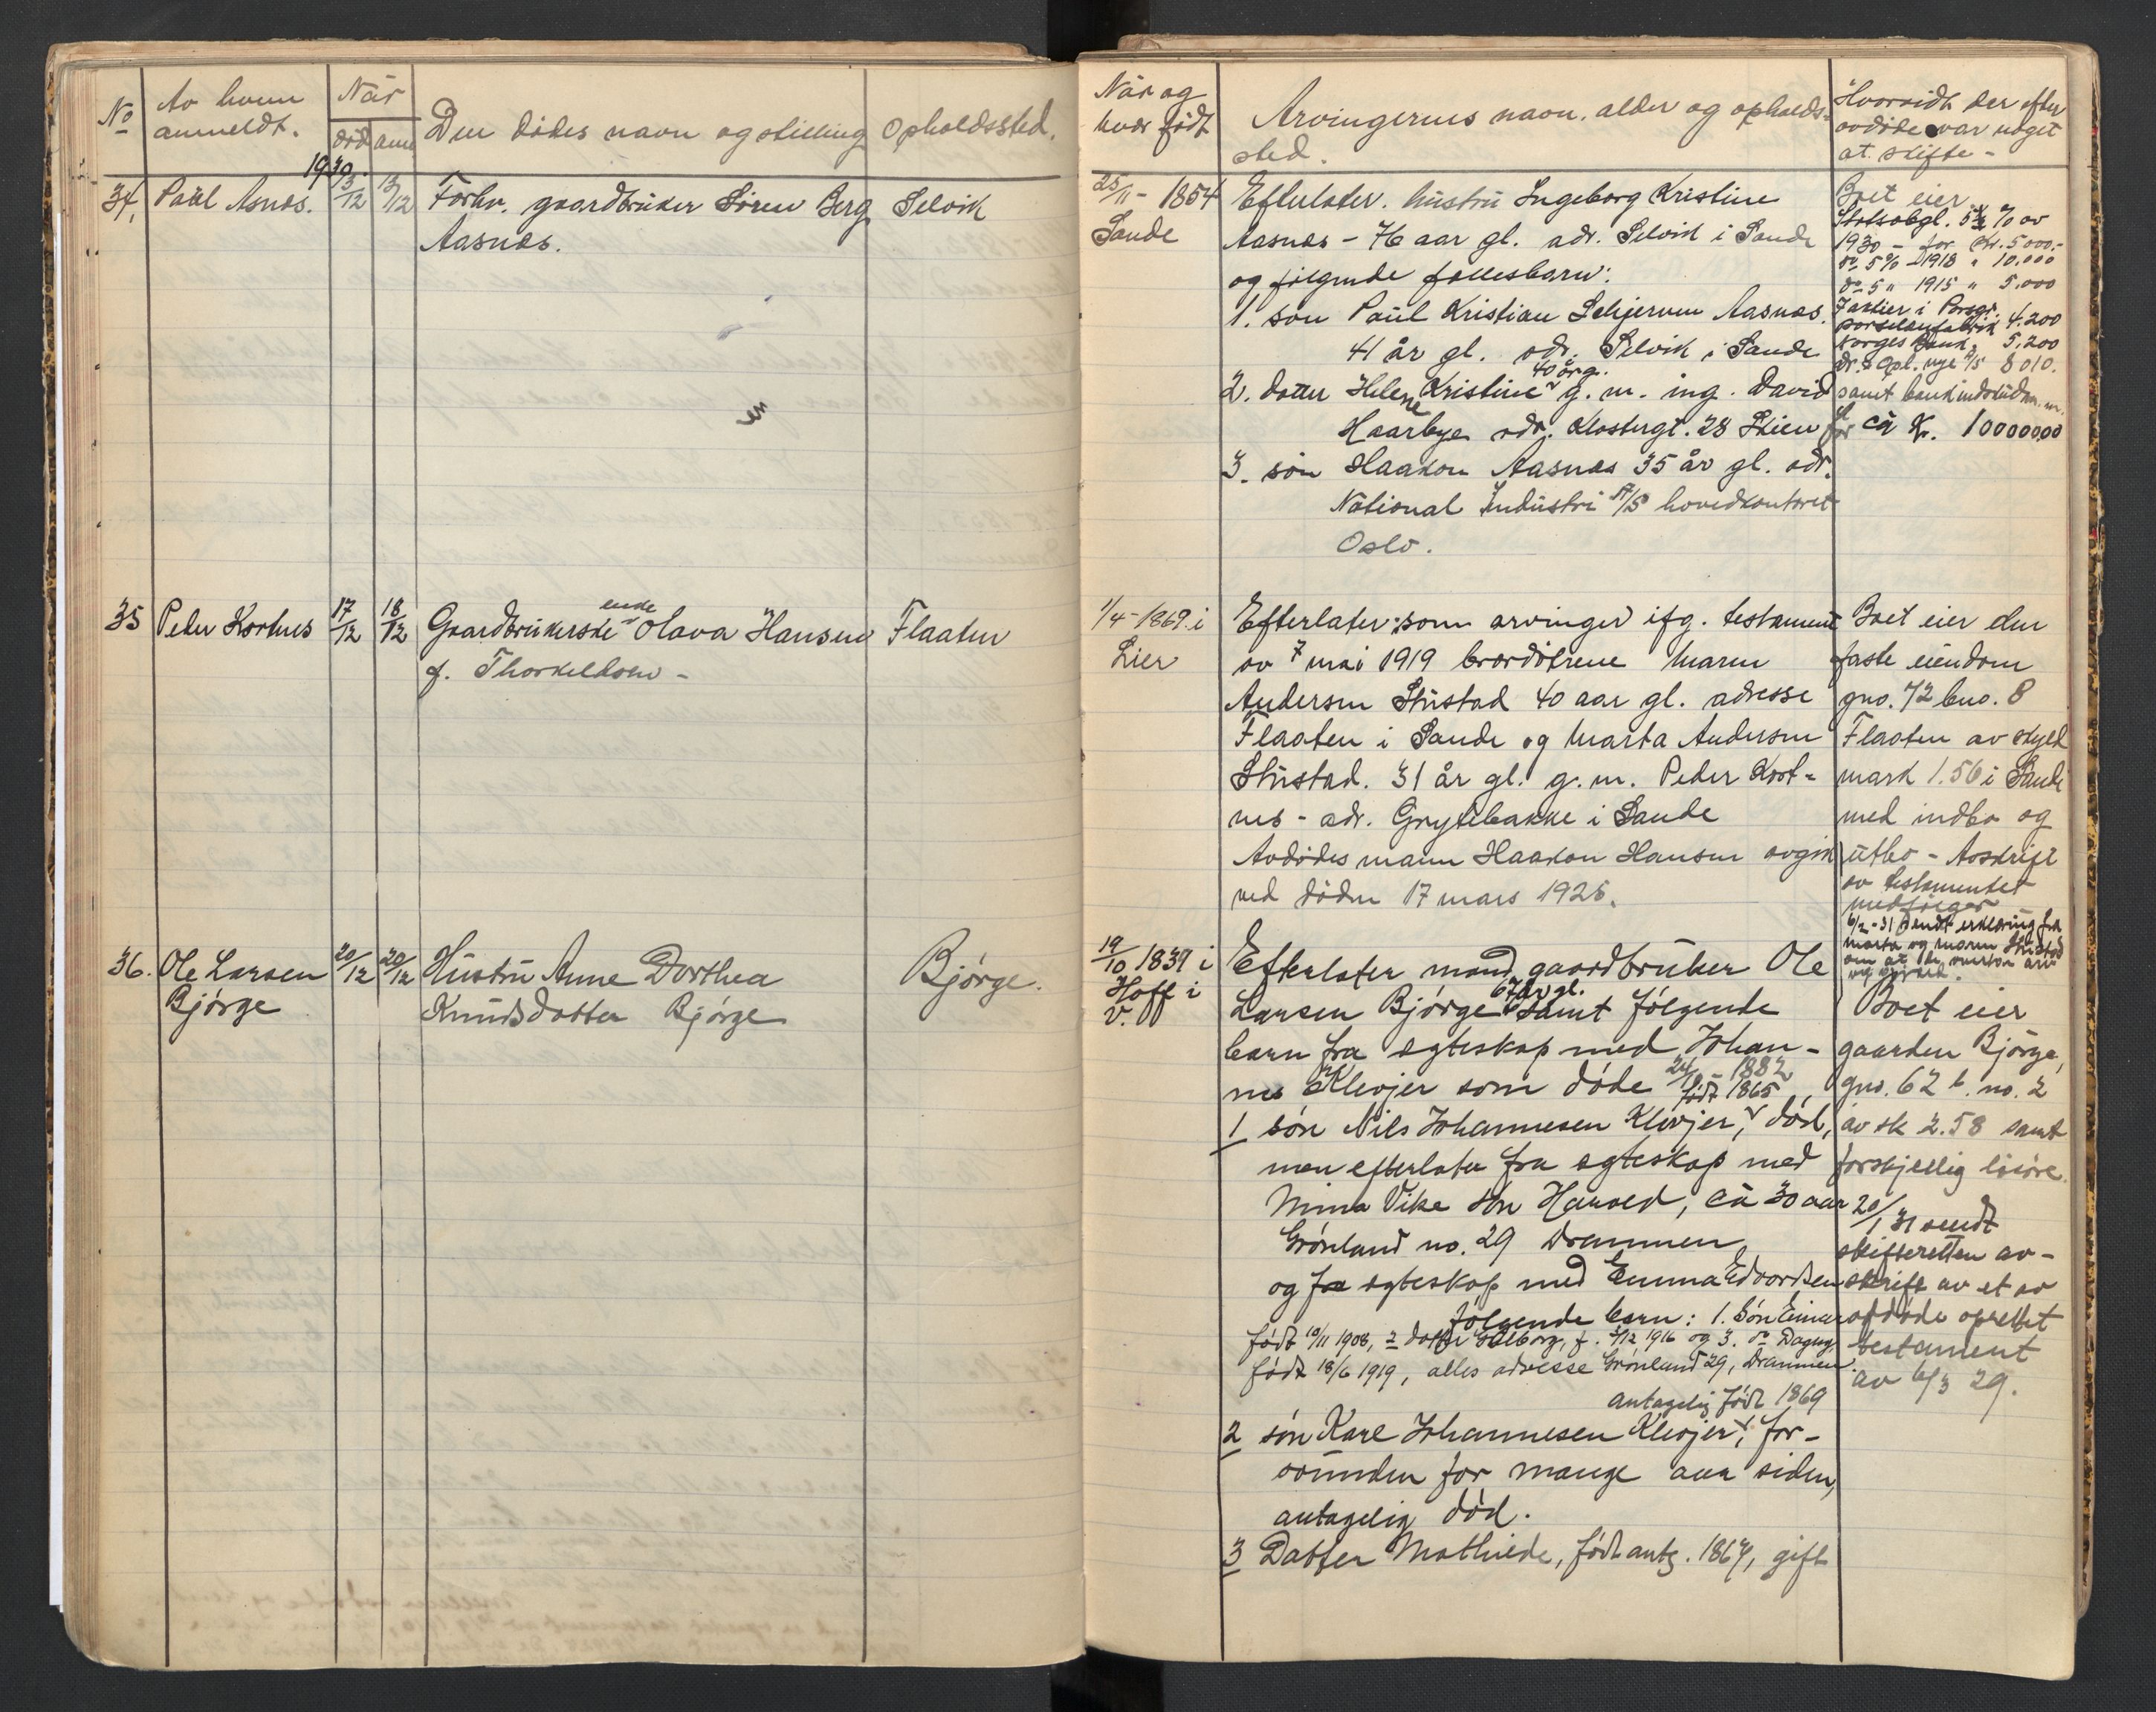 No
Av hvem
anmeldt.
Når
død
anm
Den dødes navn og stilling
Opholdssted.
1930.
34.
Paul Asnæs.
13/12
13/12
Forhv. gaardbruker Sören Berg
Aasnæs.
Selvik
35
Peder Kortnes
17/12
18/12
Gaardbrukerske enke Olava Hansen
f. Thorkeldsen -
Flaaten
36.
Ole Larsen
Bjørge
20/12
20/12
Hustru Anne Dorthea
Knudsdatter Bjørge
Bjørge.
Når og
hvor født
Arvingernes navn, alder og opholds-
sted.
Hvorvidt der efter
avdøde var noget
at skifte -
25/11 - 1854
Sande
Efterlater hustru Ingeborg Kristine
Aasnæs - 76 aar gl. adr. Selvik i Sande
og følgende fællesbarn:
1. søn Paul Kristian Schjerven Aasnæs.
41 år gl. adr. Selvik i Sande
40 år g.
2. datter Helene Kristine g. m. ing. David
Haarbye adr. Klostergt. 28 Skien
3. søn Haakon Aasnæs 35 år gl. adr.
National Industri A/S hovedkontoret
Oslo.
Boet eier
Statsobgl. 5½ % av
1930 - for Kr. 5000.-
do 5% - 1918 " 10.000
do - 5 " 1915 " 5.000
7 aktier i Porsgr.
porselensfabrik 4.200
Norges Bank 5,200
8010.
samt bankindskud m. m.
for ca Kr. 10000000
1/4 - 1869 i
Lier
Efterlater som arvinger ifg. testament
av 7 mai 1919 brordøtrene Maren
Andersen Stustad 40 aar gl. adresse
Flaaten i Sande og Marta Andersen
Stustad. 31 år gl. g. m. Peder Kort-
nes - adr. Grytebakke i Sande
Avdødes mann Haakon Hansen avgik
ved døden 17 mars 1925.
Boet eier den
faste eiendom
gno. 72 bno. 8
Flaaten av skyld
mark 1.56 i Sande
med indbo og
utbo - Avskrift
av testamentet
medfølger -
6/2 - 31 sendt erklæring fra
Marta og Maren Stustad
om at de overtar arv
og gjæld.
19/10 1839 i
Hoff i
V.
Efterlater mand gaardbruker Ole
Larsen Bjørge 67 år gl. samt følgende
barn fra egteskap med Johan-
nes Klevjer som døde 24/10 - 1882
født 1865
1 søn Nils Johannesen Klevjer, død,
men efterlater fra egteskap med
Mina Vike søn Harald, ca 30 aar
Grønland no. 29 Drammen
og fra egteskap med Emma Edvardsen
følgende barn: 1. Søn Einar
født 10/11 1908, 2 datter Solborg, f. 4/12 1916 og 3. do Dagny
født 18/6 1919, alles adresse Grønland 29, Drammen.
antagelig født 1869
2 søn Karl Johannesen Klevjer, for-
svunden for mange aar siden,
antagelig død.
3 Datter Mathilde, født antg. 1867, gift
Boet eier
gaarden Bjørge,
gno. 62 b. no. 2
av sk 2.58 samt
forskjellig løsøre.
20/1 31 sendt
skifteretten av-
skrift av et av
afdøde oprettet
testament
av 6/3 29.